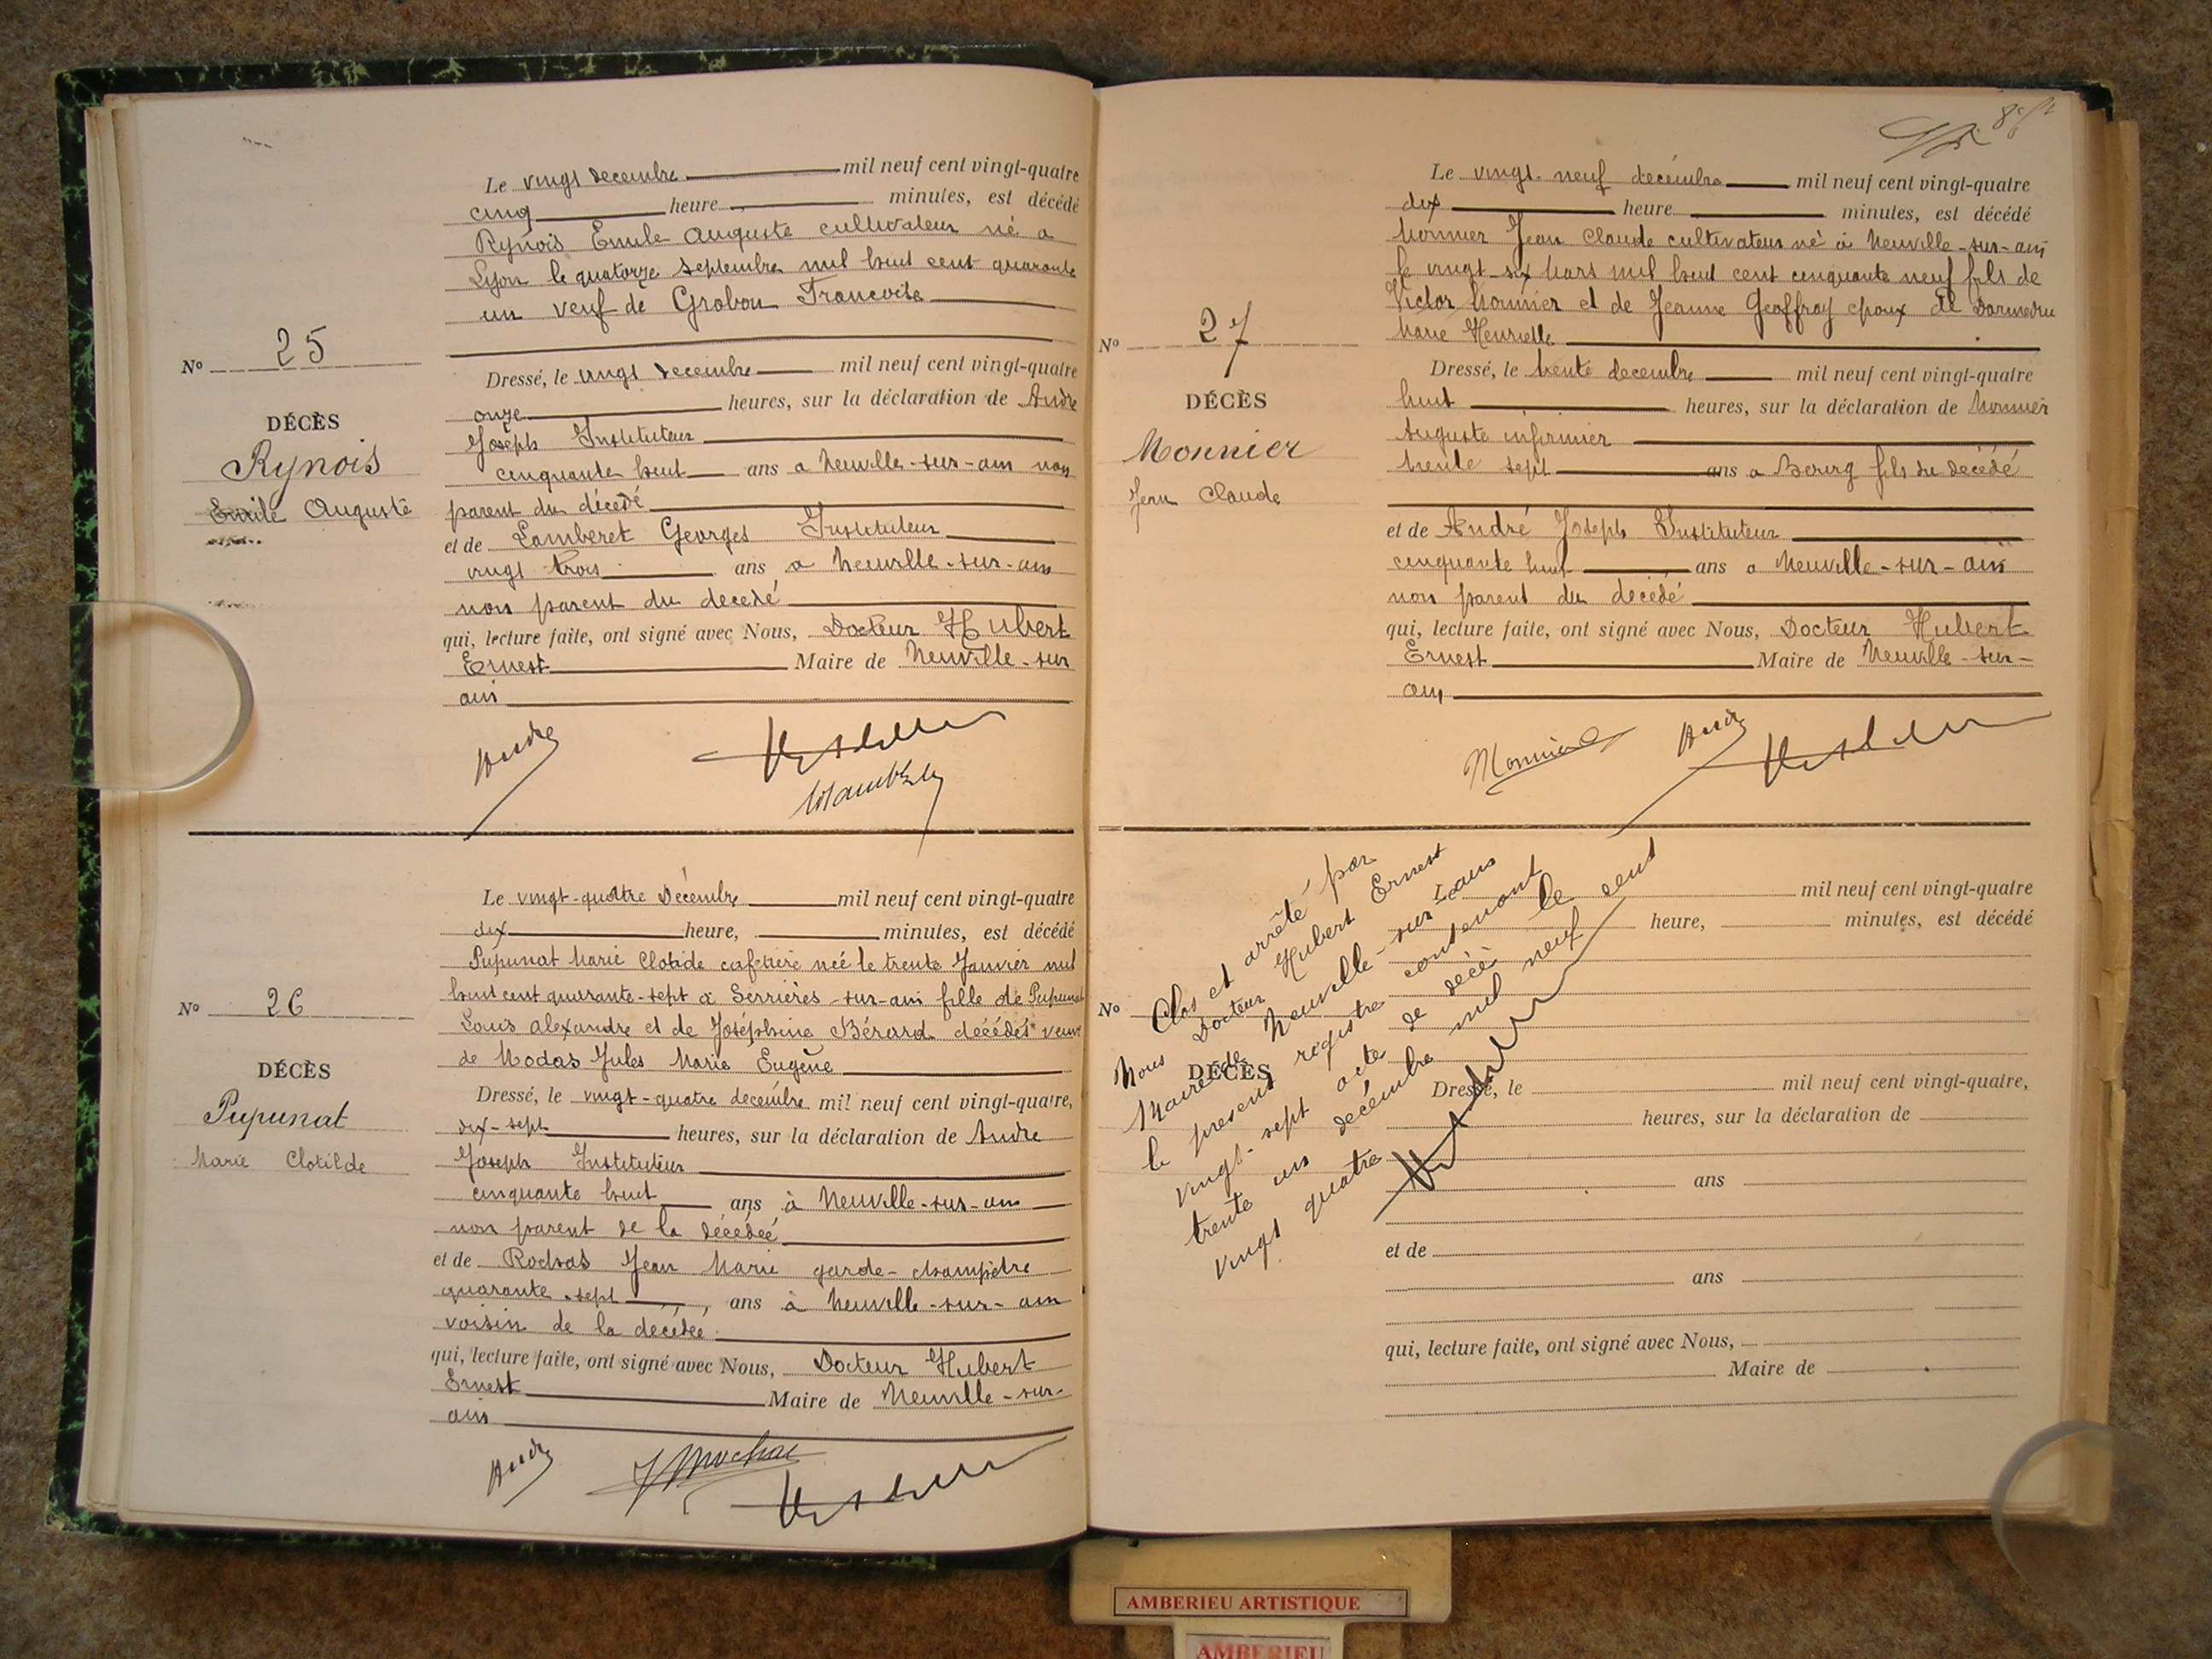 Le vingt decembre mil neuf cent vingt-quatre
cinq heure minutes, est décédé
Rynois Emile Auguste cultivateur né a
Lyon le quatorze septembre mil huit cent quarante
un veuf de Grobon Francoise
No 25
Dressé, le vingt decembre mil neuf cent vingt-quatre
onze heures, sur la déclaration de Andre
DÉCÈS
Joseph Instituteur
Rynois
cinquante huit ans a Neuville-sur-ain non
Emile Auguste
parent du décédé
et de Lamberet Georges Instituteur
vingt trois ans a Neuville-sur-ain
non parent du decedé
qui, lecture faite, ont signé avec Nous, Docteur Hubert
Ernest Maire de Neuville-sur
ain
André
Le vingt-quatre Décembre mil neuf cent vingt-quatre
dix heure, minutes, est décédé
Pupunat Marie Clotide cafetière neé le trente Janvier mil
huit cent quarante-sept à Serrières-sur-ain fille de Pupunat
No 26
Louis alexandre et de Joséphine Bérard décédés veuve
de Modas Jules Marie Eugène
DÉCÈS
Dressé, le vingt-quatre decembre mil neuf cent vingt-quatre,
Pupunat
dix-sept heures, sur la déclaration de Andre
Marie Clotilde
Joseph Instituteur
cinquante huit ans à Neuville-sur-ain
non parent de la décédeé
et de Jean Marie garde-champêtre
quarante-sept, ans à Neuville-sur-ain
voisin de la decedée
qui, lecture faite, ont signé avec Nous, Docteur Hubert
Ernest Maire de Neuville-sur-
ain
André
Le vingt-neuf décembre mil neuf cent vingt-quatre
dix heure minutes, est décédé
Monnier Jean Claude cultivateur né à Neuville-sur-ain
le vingt-six Mars mil huit cent cinquante neuf fils de
Victor Monnier et de Jeanne Geoffray époux de
Marie Henriette
No 27
Dressé, le trente decembre mil neuf cent vingt-quatre
DÉCÈS
huit heures, sur la déclaration de Monnier
Monnier
Auguste infirmier
Jean Claude
trente sept ans a fils du décédé
et de André Joseph Instituteur
cinquante huit ans a Neuville-sur-ain
non parent du décédé
qui, lecture faite, ont signé avec Nous, Docteur Hubert
Ernest Maire de Neuville-sur-
ain
Monnier André
Clos et arrêté par
Nous Docteur Hubert Ernest
Maire de Neuville-sur-ain
le present registre contenant
vingt-sept acte de décès le
trente un decembre mil neuf cent
vingt quatre
mil neuf cent vingt-quatre
heure, minutes, est décédé
No
DÉCÈS
Dressé, le mil neuf cent vingt-quatre,
heures, sur la déclaration de
ans
et de
ans
qui, lecture faite, ont signé avec Nous,
Maire de
AMBERIEU ARTISTIQUE
AMBERIEU